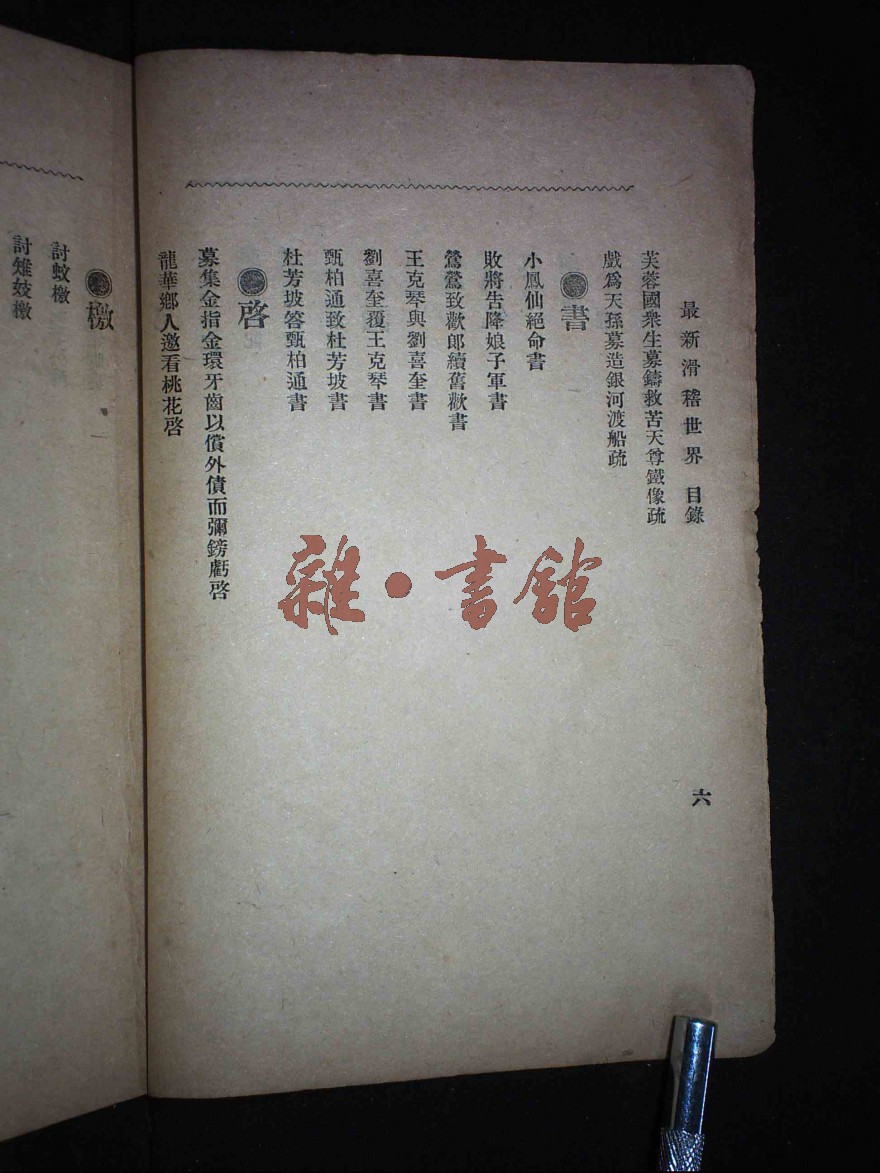 最新滑稽世界 目錄
六
芙蓉國衆生募鑄救苦天尊鐵像疏
戲爲天孫募造銀河渡船疏
書
小鳳仙絕命書
敗將告降娘子軍書
鶯鶯致歡郎續舊歡書
王克琴與劉喜奎書
劉喜奎覆王克琴書
甄柏通致杜芳坡書
杜芳坡答甄柏通書
啓
募集金指金環牙齒以償外債而彌鎊虧啓
龍華鄉人邀看桃花啓
檄
討蚊檄
討雉妓檄
雜·書館